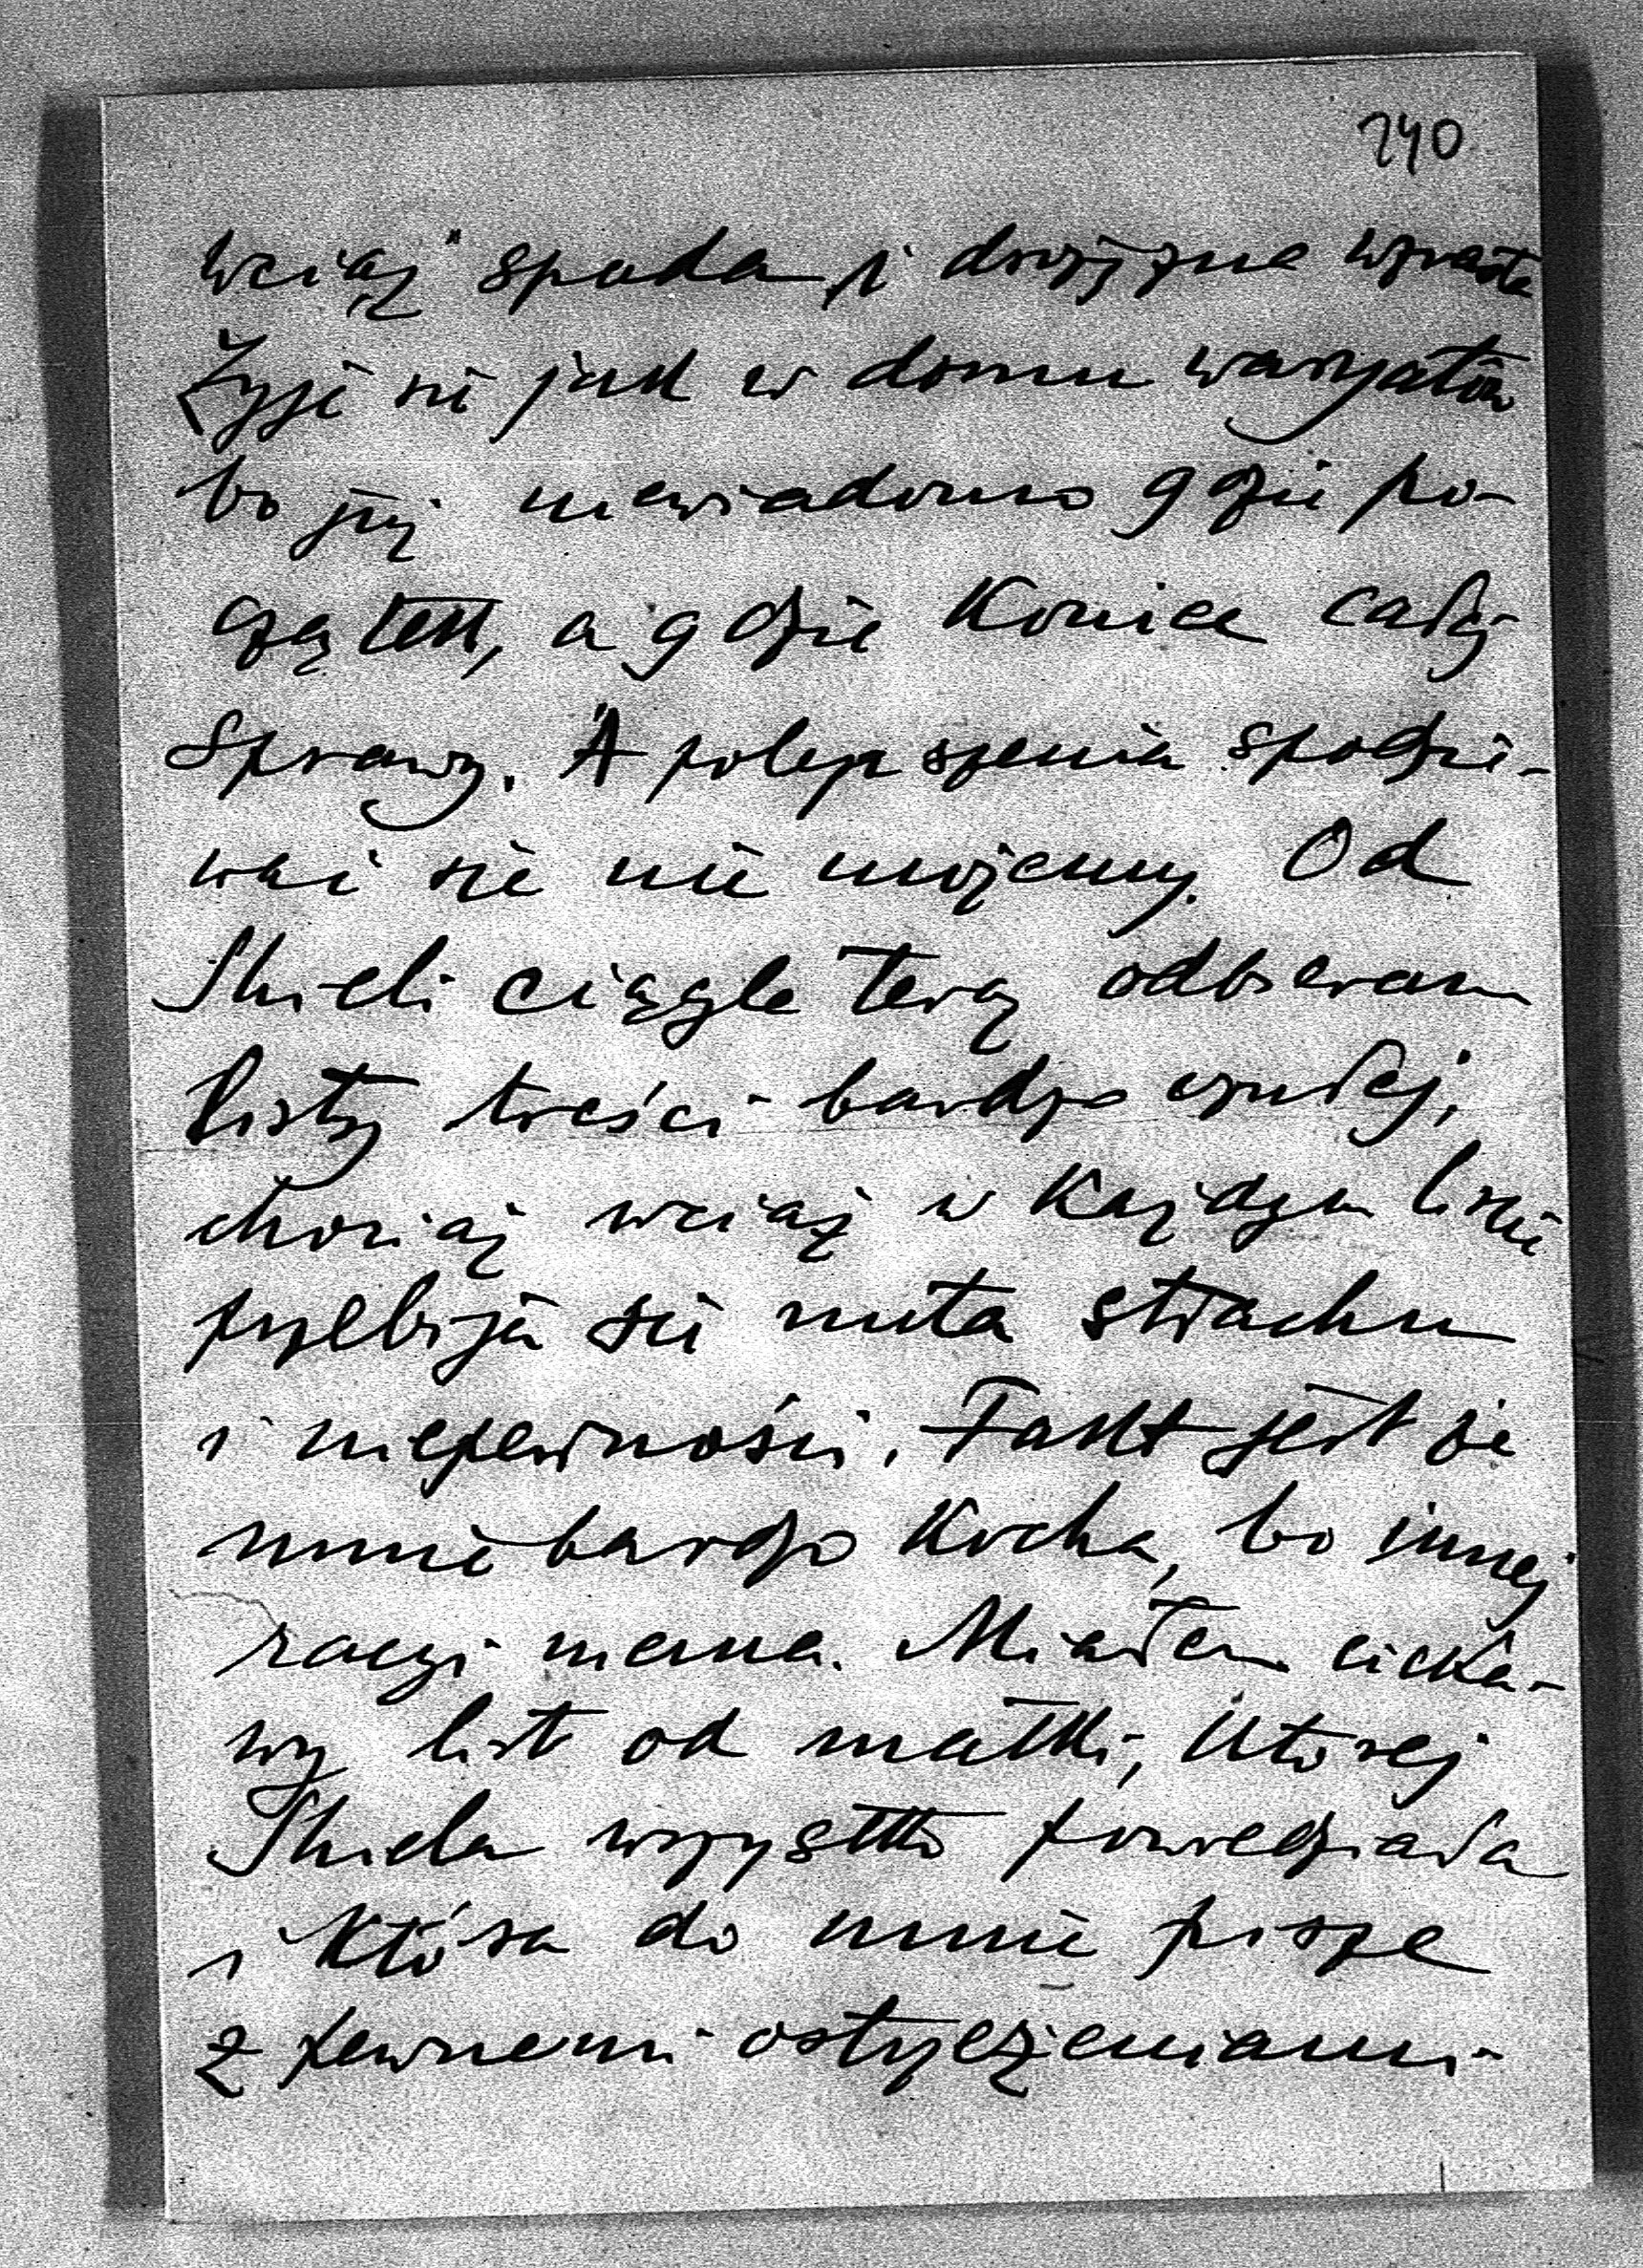 240
wciąż spada i drożyzna wzrasta
Żyje się jak w domu waryatów
bo już niewiadomo gdzie po-
czątek, a gdzie koniec całej
sprawy. A polepszenia spodzie-
wać się nie możemy. Od
Shieli ciągle teraz odbieram
listy treści bardzo czułej,
chociaż wciąż w każdym liście
przebija się nuta strachu
i niepewności. Fakt jest że
mnie bardzo kocha, bo innej
racyi niema. Miałem cieka-
wy list od matki, której
Shiela wszystko powiedziała
i która do mnie pisze
z pewnemi ostrzeżeniami